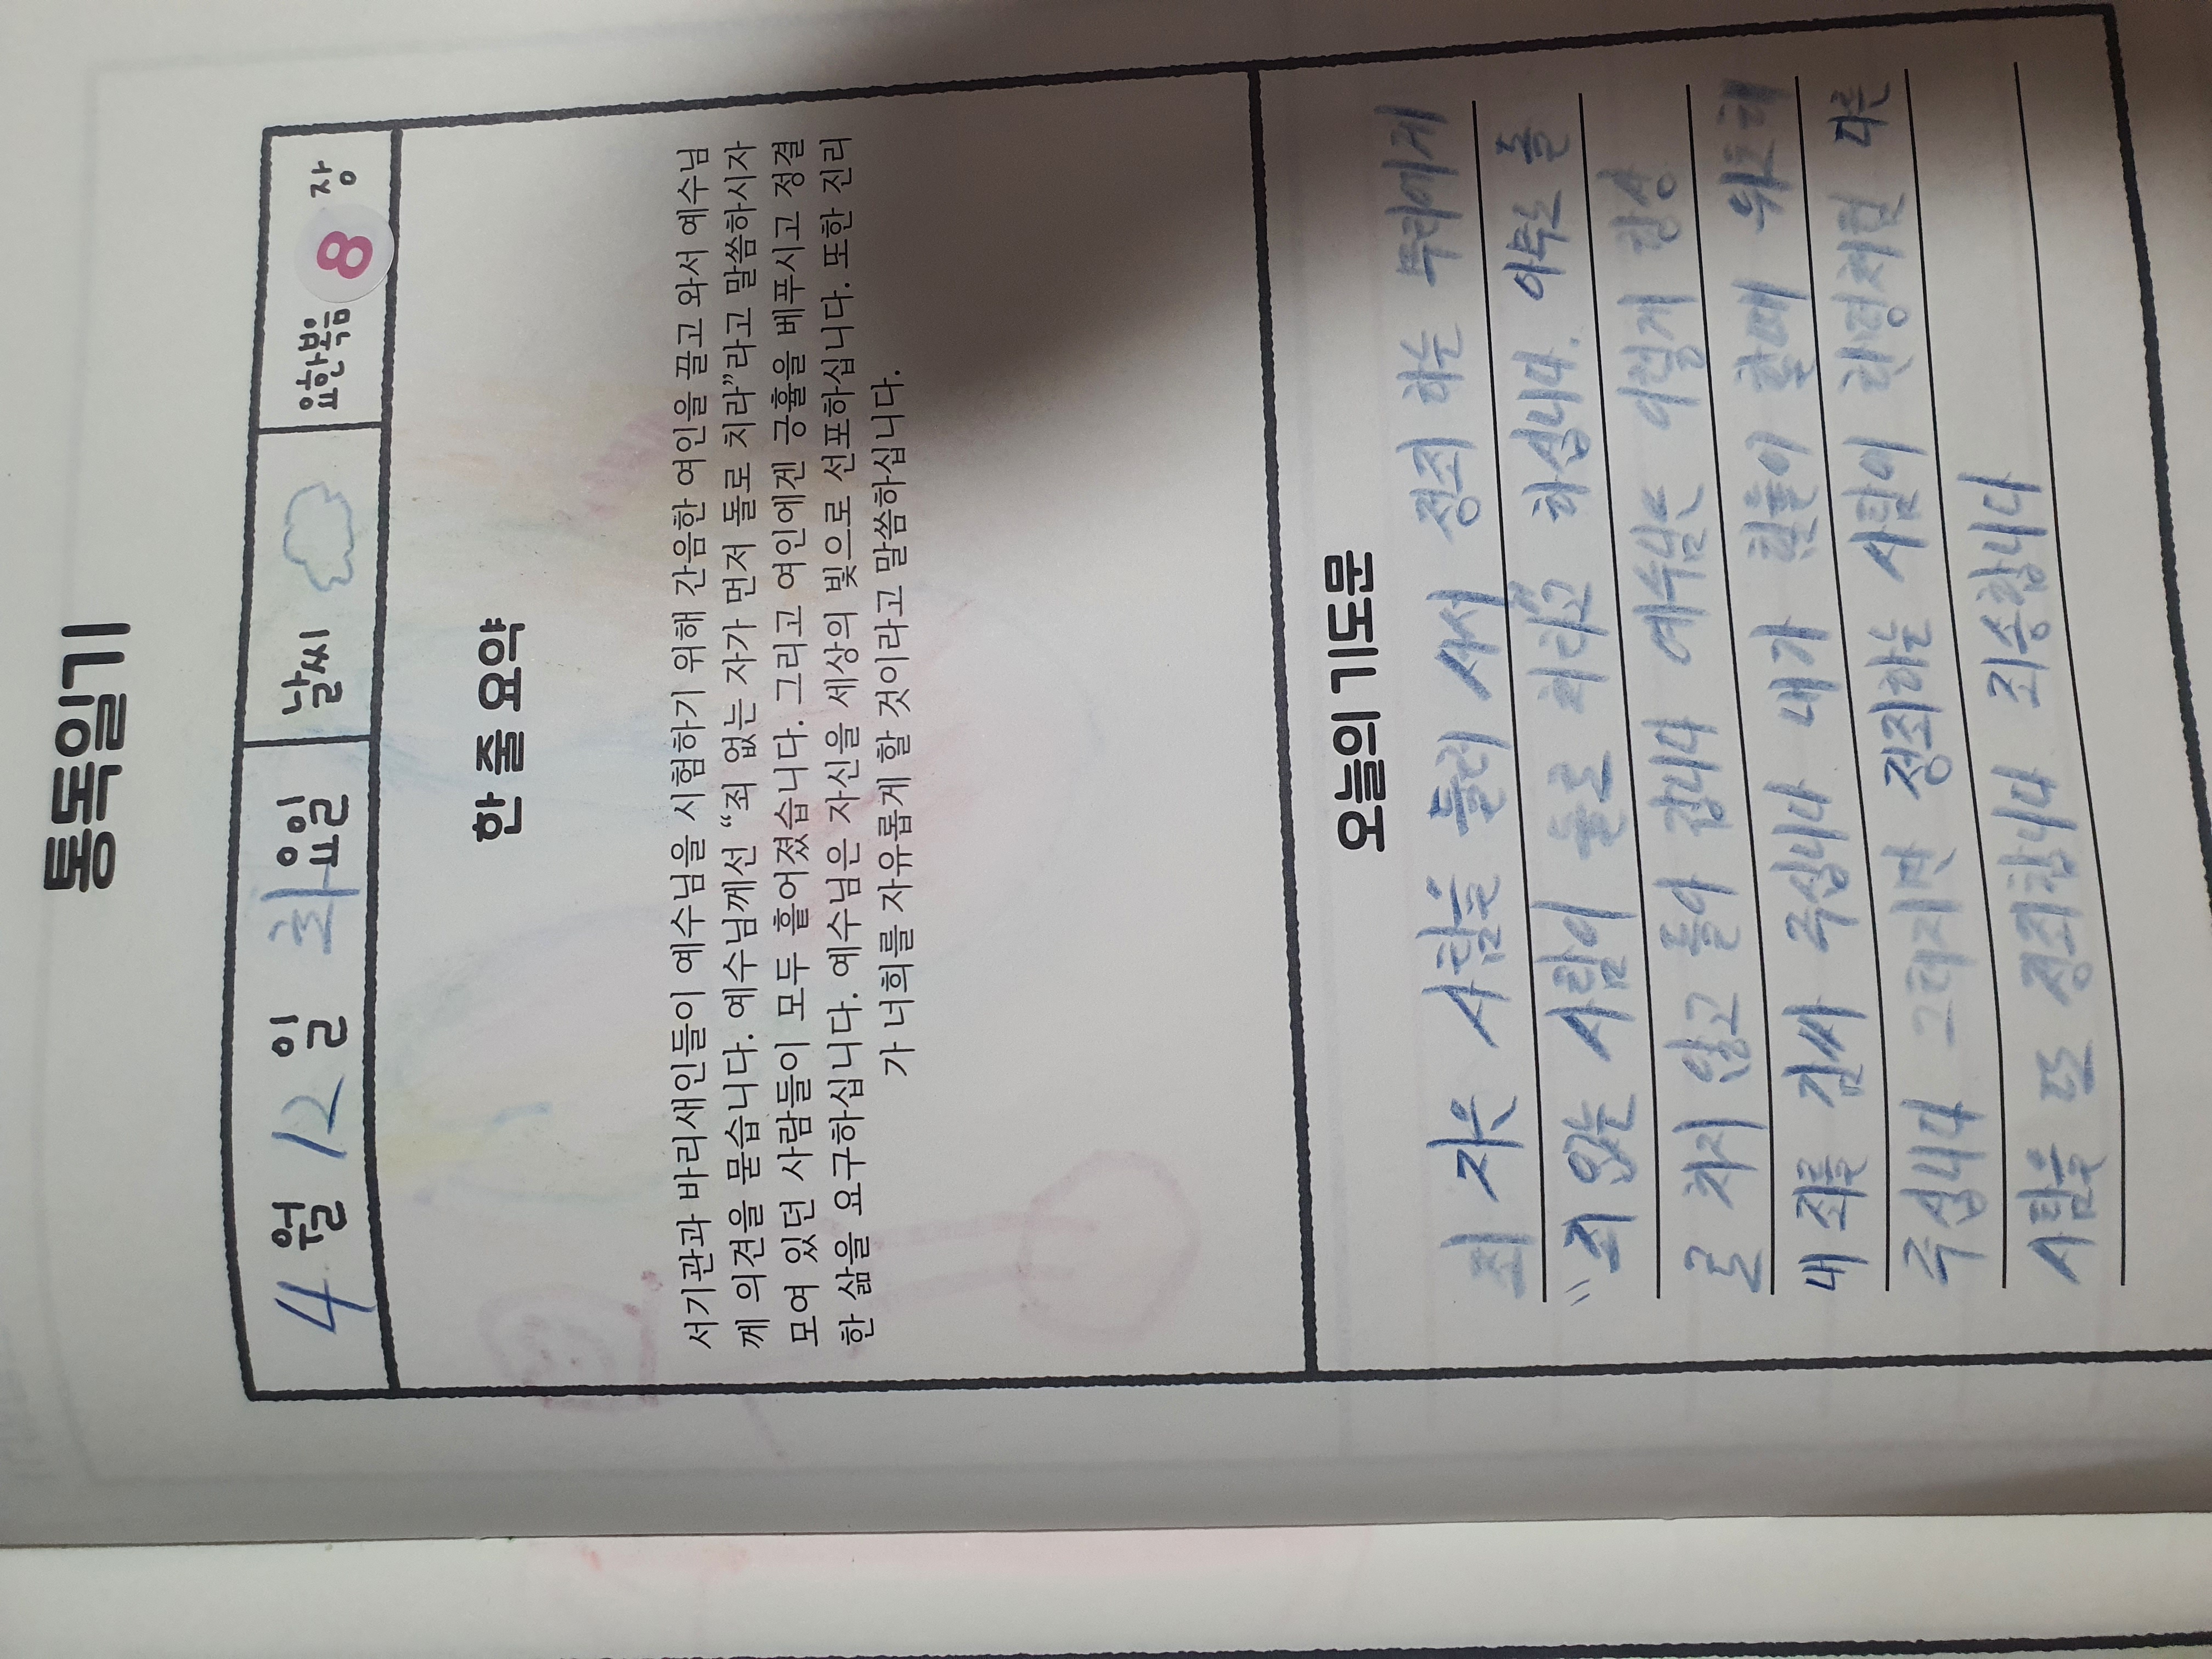 통독일기
4 월 12 일 화요일 날씨 요한복음 8 장
한 줄 요약
서기관과 바리새인들이 예수님을 시험하기 위해 간음한 여인을 끌고 와서 예수님
께 의견을 묻습니다. 예수님께선 “죄 없는 자가 먼저 돌로 치라”라고 말씀하시자
모여 있던 사람들이 모두 흩어졌습니다. 그리고 여인에겐 긍휼을 베푸시고 정결
한 삶을 요구하십니다. 예수님은 자신을 세상의 빛으로 선포하십니다. 또한 진리
가 너희를 자유롭게 할 것이라고 말씀하십니다.
오늘의 기도문
죄 지은 사람을 둘러 사서 정죄 하는 무리에게
"죄 없는 사람이 돌로 치라"고 하십니다. 아무도 돌
로 치지 않고 돌아 갑니다 예수님은 이렇게 항상
내 죄를 감싸 주십니다 내가 힘들어 할때 위로해
주십니다 그러지만 정죄하는 사람이 한명처럼 다른
사람을 또 정죄합니다 죄송합니다